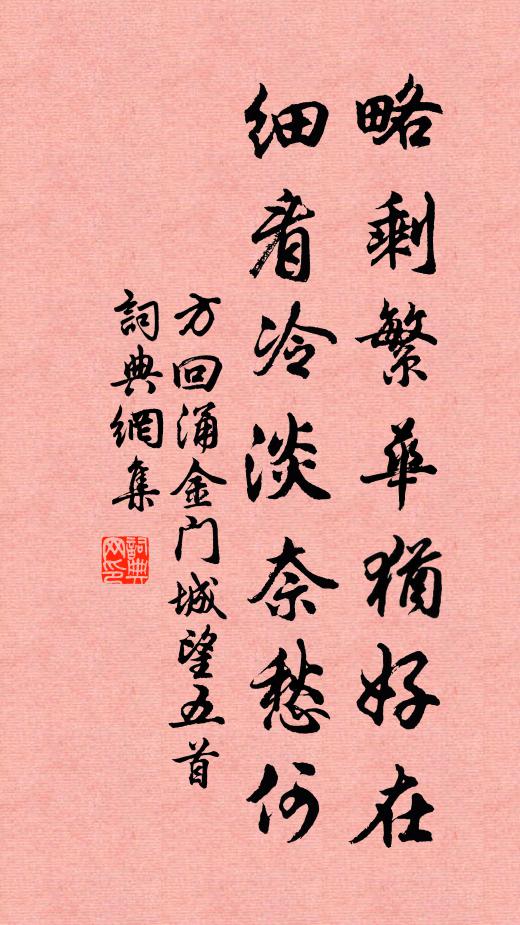 略剩繁華猶好在
細看冷淡奈愁何
方回涌金门城望五首
詞典網集
詞典网印